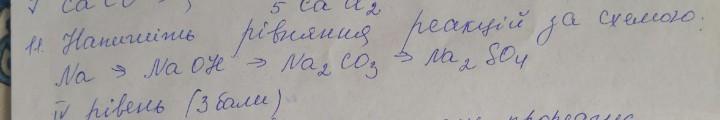 5 CaCl2
11. Напишіть рівняння реакцій за схемою:
Na → NaOH → Na2CO3 → Na2SO4
IV рівень (3 бали)